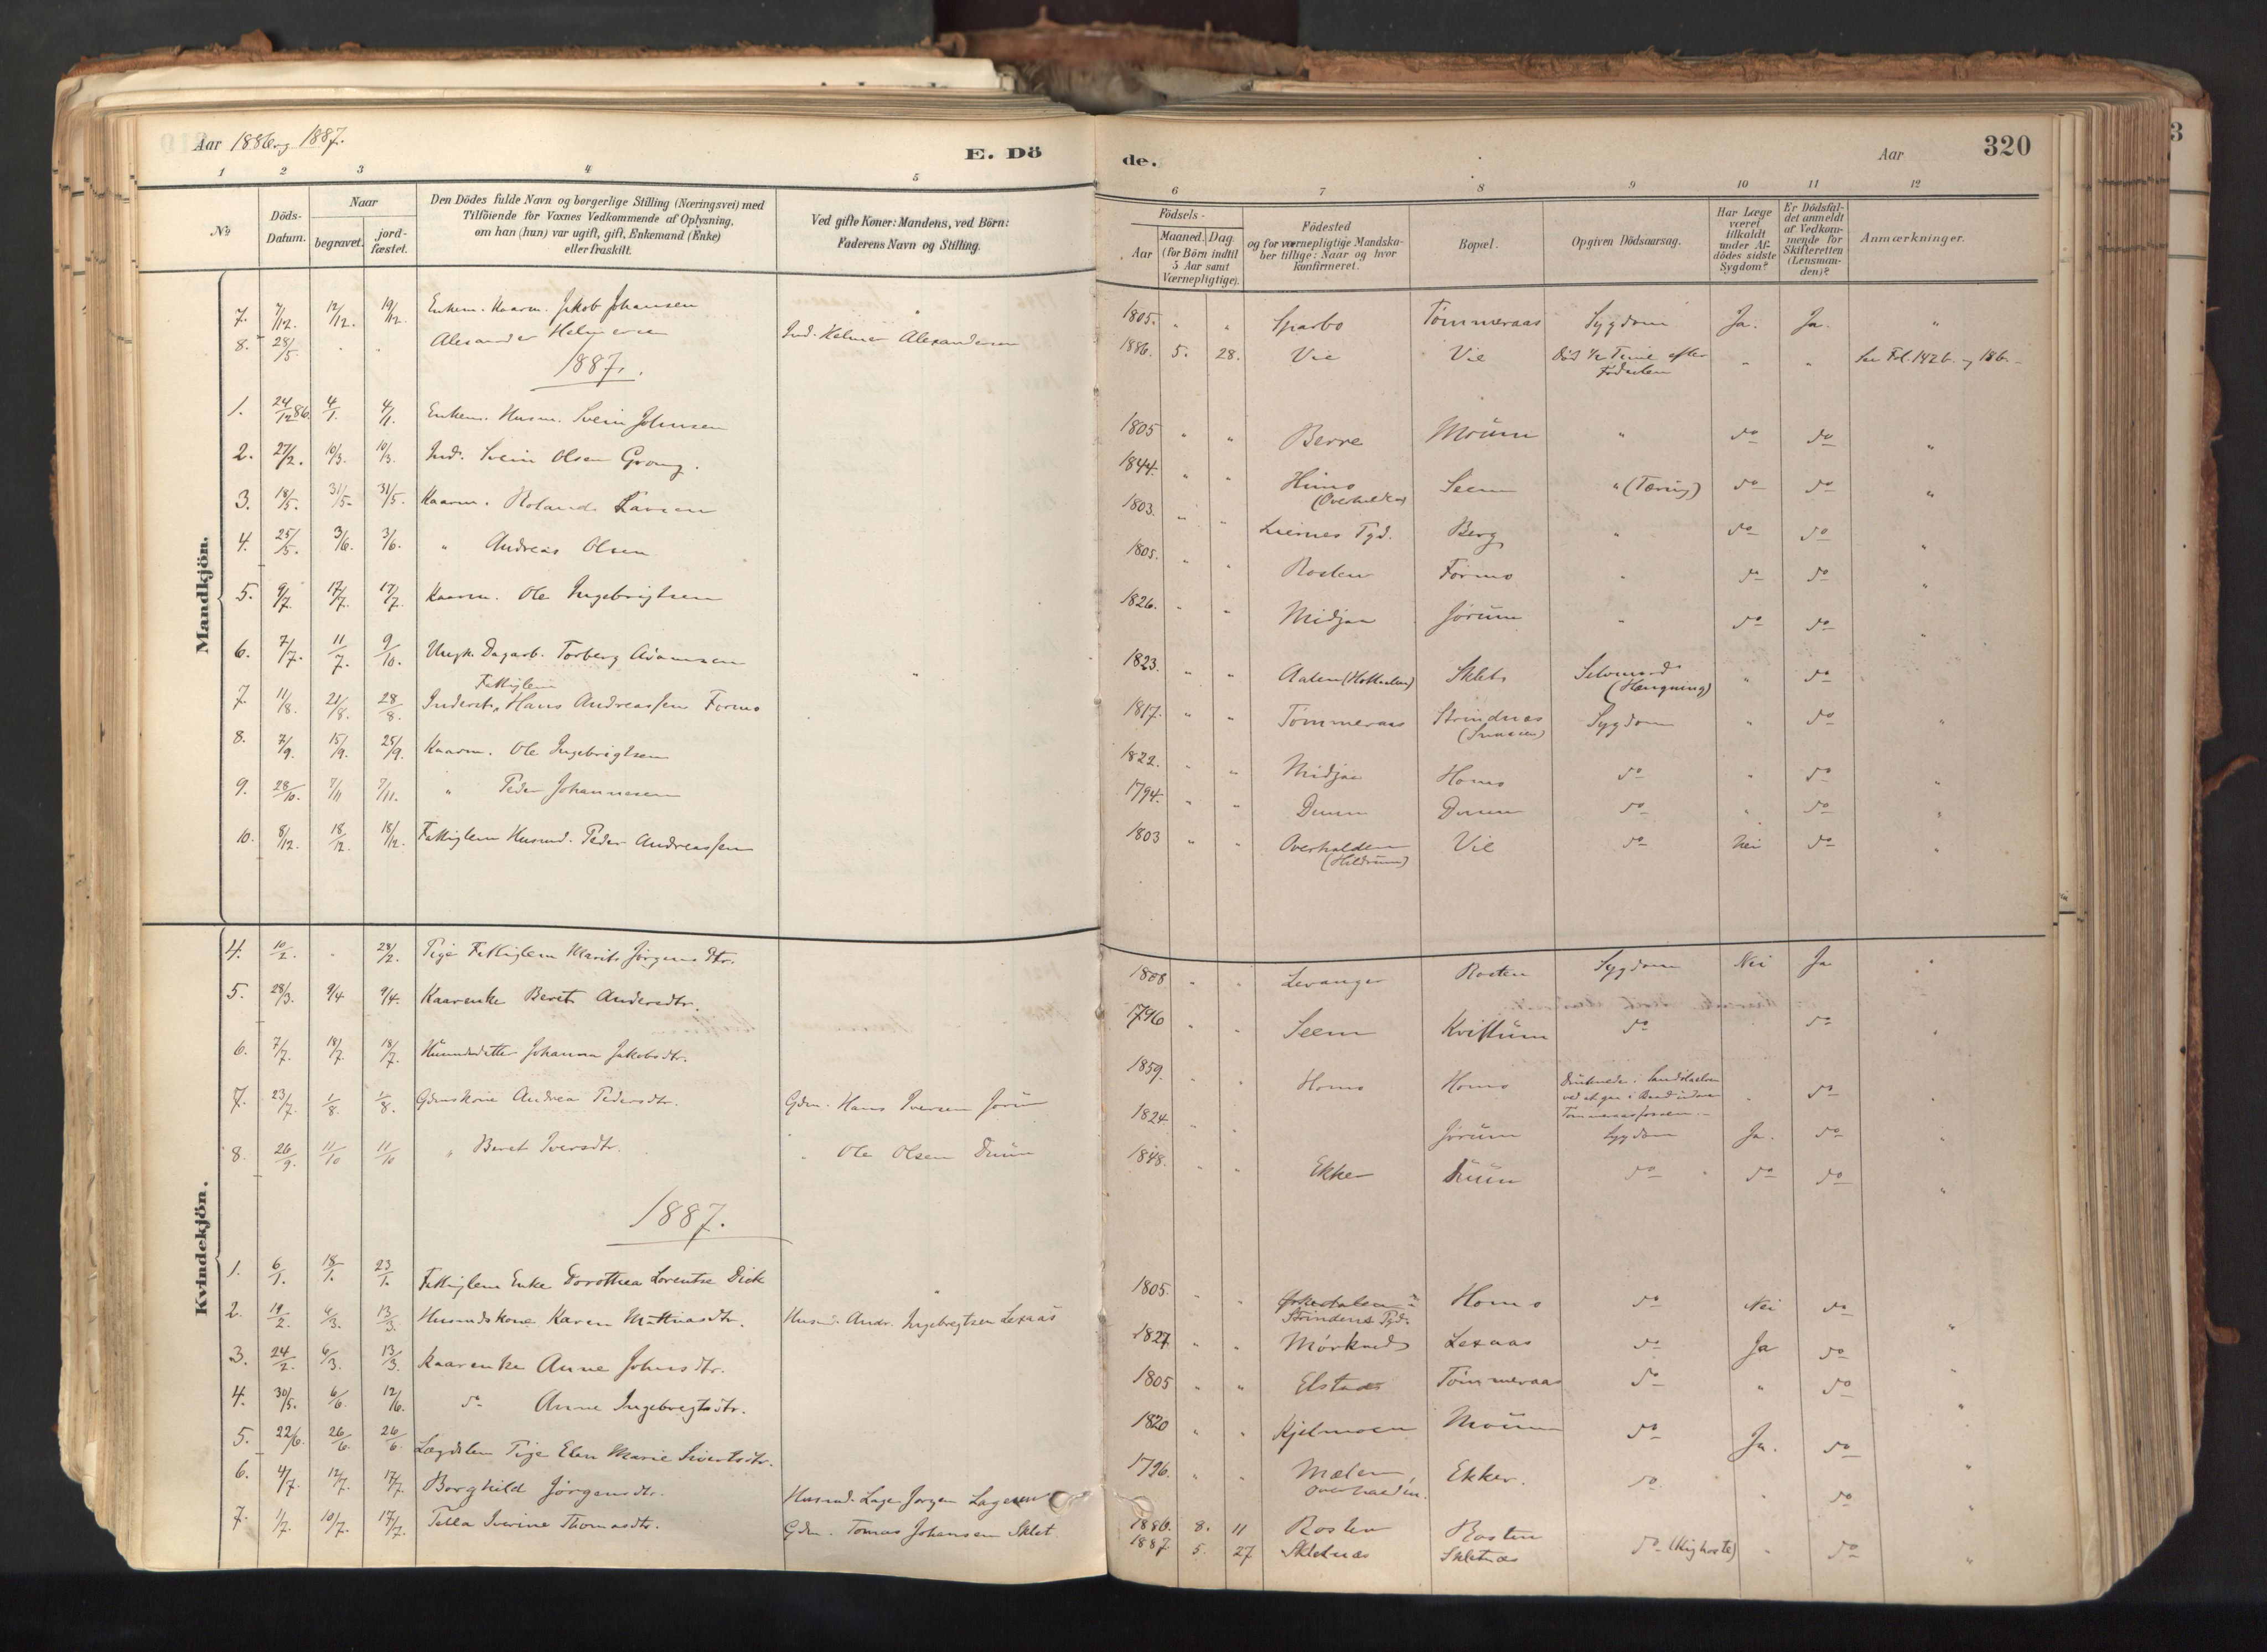 Aar 1886 og 1887.
E. Döde.
Aar
320
1 2 3 4 5 6 7 8 9 10 11 12
No
Döds-Datum.
Naar
begravet.
jord-fæstet.
Den Dödes fulde Navn og borgerlige Stilling (Næringsvei) med
Tilföiende for Voxnes Vedkommende af Oplysning,
om han (hun) var ugift, gift, Enkemand (Enke)
eller fraskilt.
Ved gifte Koner: Mandens, ved Börn:
Faderens Navn og Stilling.
Födsels-
Aar
Maaned. Dag.
(for Börn indtil
5 Aar samt
Værnepligtige).
Födested
og for værnepligtige Mandska-
ber tillige: Naar og hvor
konfirmeret.
Bopæl.
Opgiven Dödsaarsag.
Har Læge
været
tilkaldt
under Af-
dödes sidste
Sygdom?
Er Dödsfal-
det anmeldt
af Vedkom-
mende for
Skifteretten
(Lensman-
den)?
Anmærkninger.
Mandkjön.
7. 7/12. 12/12. 19/12. Enkem. Kaarm. Jakob Johansen " 1805. " " Sparbo Tømmeraas Sygdom Ja. Ja. "
8. 28/5. " " Alexander Helmersen Ind. Helmer Alexandersen 1886. 5. 28. Vie Vie Død 1/2 Time efter Fødselen " " Se Fol. 142 b. og 186.
1887.
1. 24/12 86. 4/1. 4/1. Enkem. Husm. Svein Johnsen 1805 " " Berre Moüm " do do "
2. 27/2. 10/3. 10/3. Ind. Svein Olsen Grong. 1844. " " Himo (Overhalden) Seem " (Tæring) do do "
3. 18/5. 31/5. 31/5. Kaarm. Roland Larsen 1803. " " Liernes Pgd. Berg " do do "
4. 25/5. 3/6. 3/6. " Andreas Olsen 1805. " " Rosten Formo " do do "
5. 9/7. 17/7. 17/7. Kaarm. Ole Ingebrigtsen 1826. " " Midjaa Jørum " do do "
6. 7/7. 11/7. 9/10. Ungk. Dagarb. Torberg Adamsen " 1823. " " Aalen (Holtaalen) Sklet Selvmord (Hængning) " do
7. 11/8. 21/8. 28/8. Inderst, Fattiglem Hans Andreassen Formo 1817. " " Tømmeraas Strindnæs Sygdom " do "
8. 7/9. 15/9. 25/9. Kaarm. Ole Ingebrigtsen 1822. " " Midjaa Homo do " do "
9. 28/10. 7/11 7/11. " Peder Johannesen 1794. " " Duum Duum do " do "
10. 8/12. 18/12. 18/12. Fattiglem Husmd. Peder Andreassen 1803 " " Overhalden (Hildrum) Vie do Nei do "
Kvindekjön.
4. 10/2. " 28/2. Pige Fattiglem Marit Jørgensdtr. 1808 " " Levanger Rosten Sygdom Nei Ja "
5. 28/3. 9/4 9/4. Kaarenke Beret Andersdtr. 1796 " " Seem Kvistum do do "
6. 7/7. 18/7. 18/7. Husmdsdatter Johanna Jakobsdtr. 1859. " " Homo Homo Druknede i Sanddøla elven ved at gaa i Baad Tømmeraasfossen. " do "
7. 23/7. 1/8. 1/8. Gdmskone Andrea Pedersdtr. Gdm. Hans Iversen Jørum 1824 " " Jørum Sygdom Ja. do "
8. 26/9. 11/10 11/10 " Beret Iversdtr. " Ole Olsen Duum 1848. " " Ekker Duum do do do "
1887.
1. 6/1. 18/1. 23/1. Fattiglem Enke Dorothea Lorentse Dick 1805. " " Orkedalen Strindens Pgd. Homo do Nei do "
2. 19/2. 6/3. 13/3. Husmdskone Karen Mathiasdtr. Husmd. Andr. Ingebregtsen Lexaas 1827 " " Mørkved Lexaas do Ja do "
3. 24/2. 6/3. 13/3. Kaarenke Anne Johnsdtr. 1805 " " Elstad Tømmeraas do " do "
4. 30/5. 6/6. 12/6. do Anne Ingebregtsdtr. 1820 " " Kjelmoen Moum do Ja. do "
5. 22/6. 26/6. 26/6. Lægdslem Pige Elen Marie Sivertsdtr. 1796. " " Mælen, Overhalden. Ekker. do " do "
6. 4/7. 12/7. 17/7. Borghild Jørgensdtr. Husmd. Lage Jørgen Lagesen 1886. 8. 11 Rosten Rosten
7. 1/7. 10/7. 17/7. Tella Iverine Thomasdtr. Gdm. Tomas Johansen Sklet 1887. 5. 27 Skletnæs Skletnæs do (Kighoste) " do "